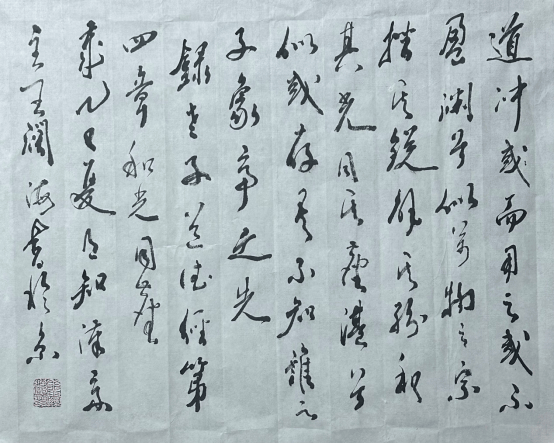 道沖或而用之或不
盈淵兮似萬物之宗
挫其銳解其紛和
其光同其塵湛兮
似或存吾不知誰之
子象帝之先
錄老子道德經第
四章和光同塵
夏知津齋
主王闊海書於京